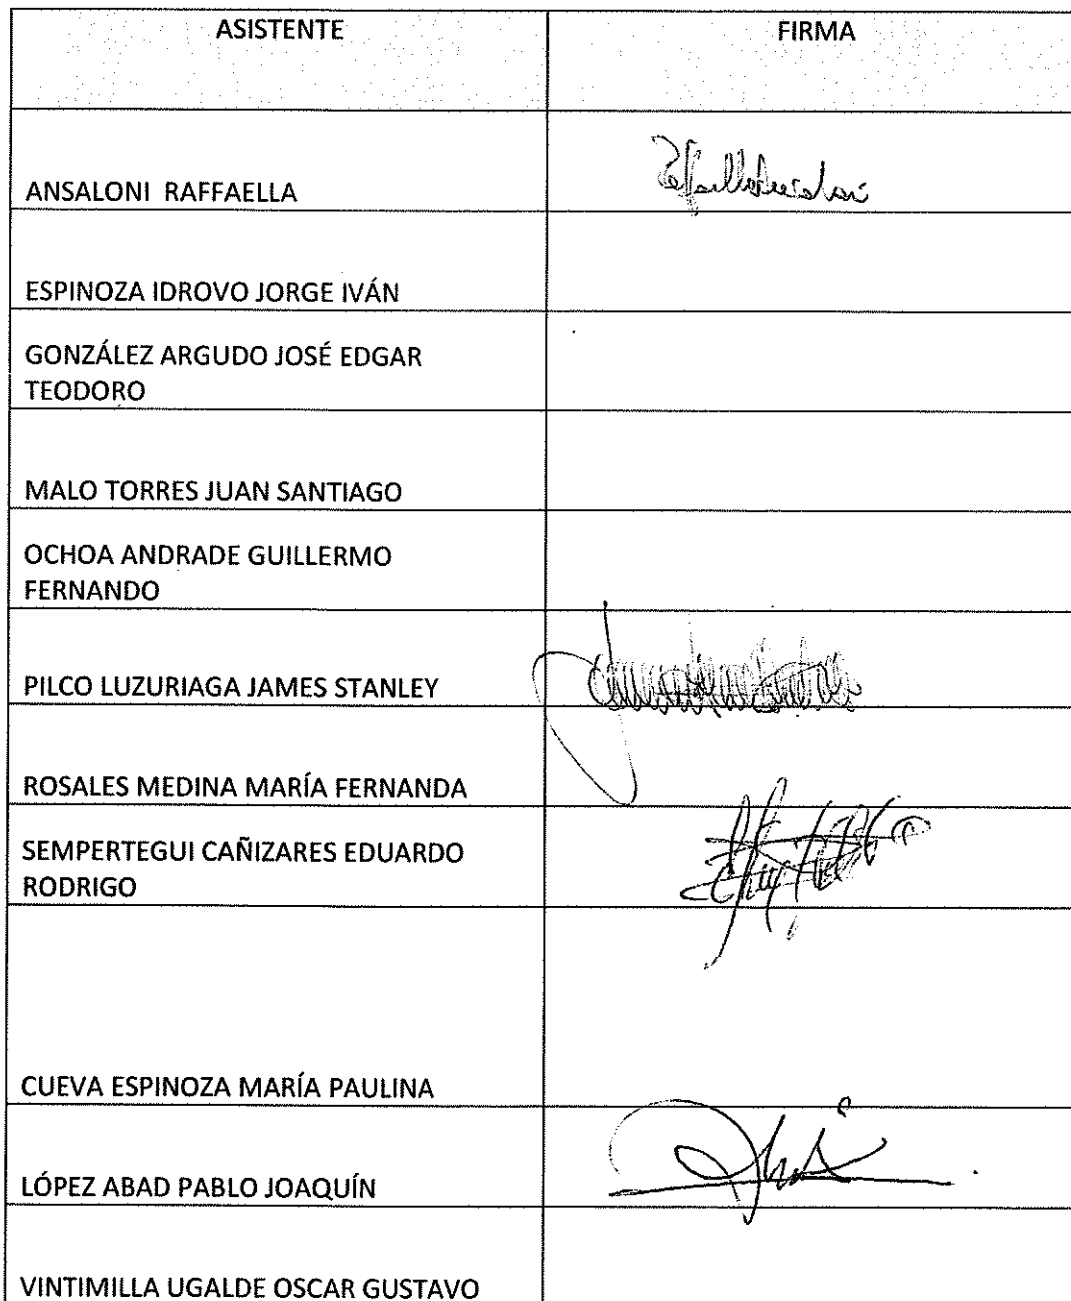 ASISTENTE FIRMA
ANSALONI RAFFAELLA
ESPINOZA IDROVO JORGE IVÁN
GONZÁLEZ ARGUDO JOSÉ EDGAR
TEODORO
MALO TORRES JUAN SANTIAGO
OCHOA ANDRADE GUILLERMO
FERNANDO
PILCO LUZURIAGA JAMES STANLEY
ROSALES MEDINA MARÍA FERNANDA
SEMPERTEGUI CAÑIZARES EDUARDO
RODRIGO
CUEVA ESPINOZA MARÍA PAULINA
LÓPEZ ABAD PABLO JOAQUÍN
VINTIMILLA UGALDE OSCAR GUSTAVO